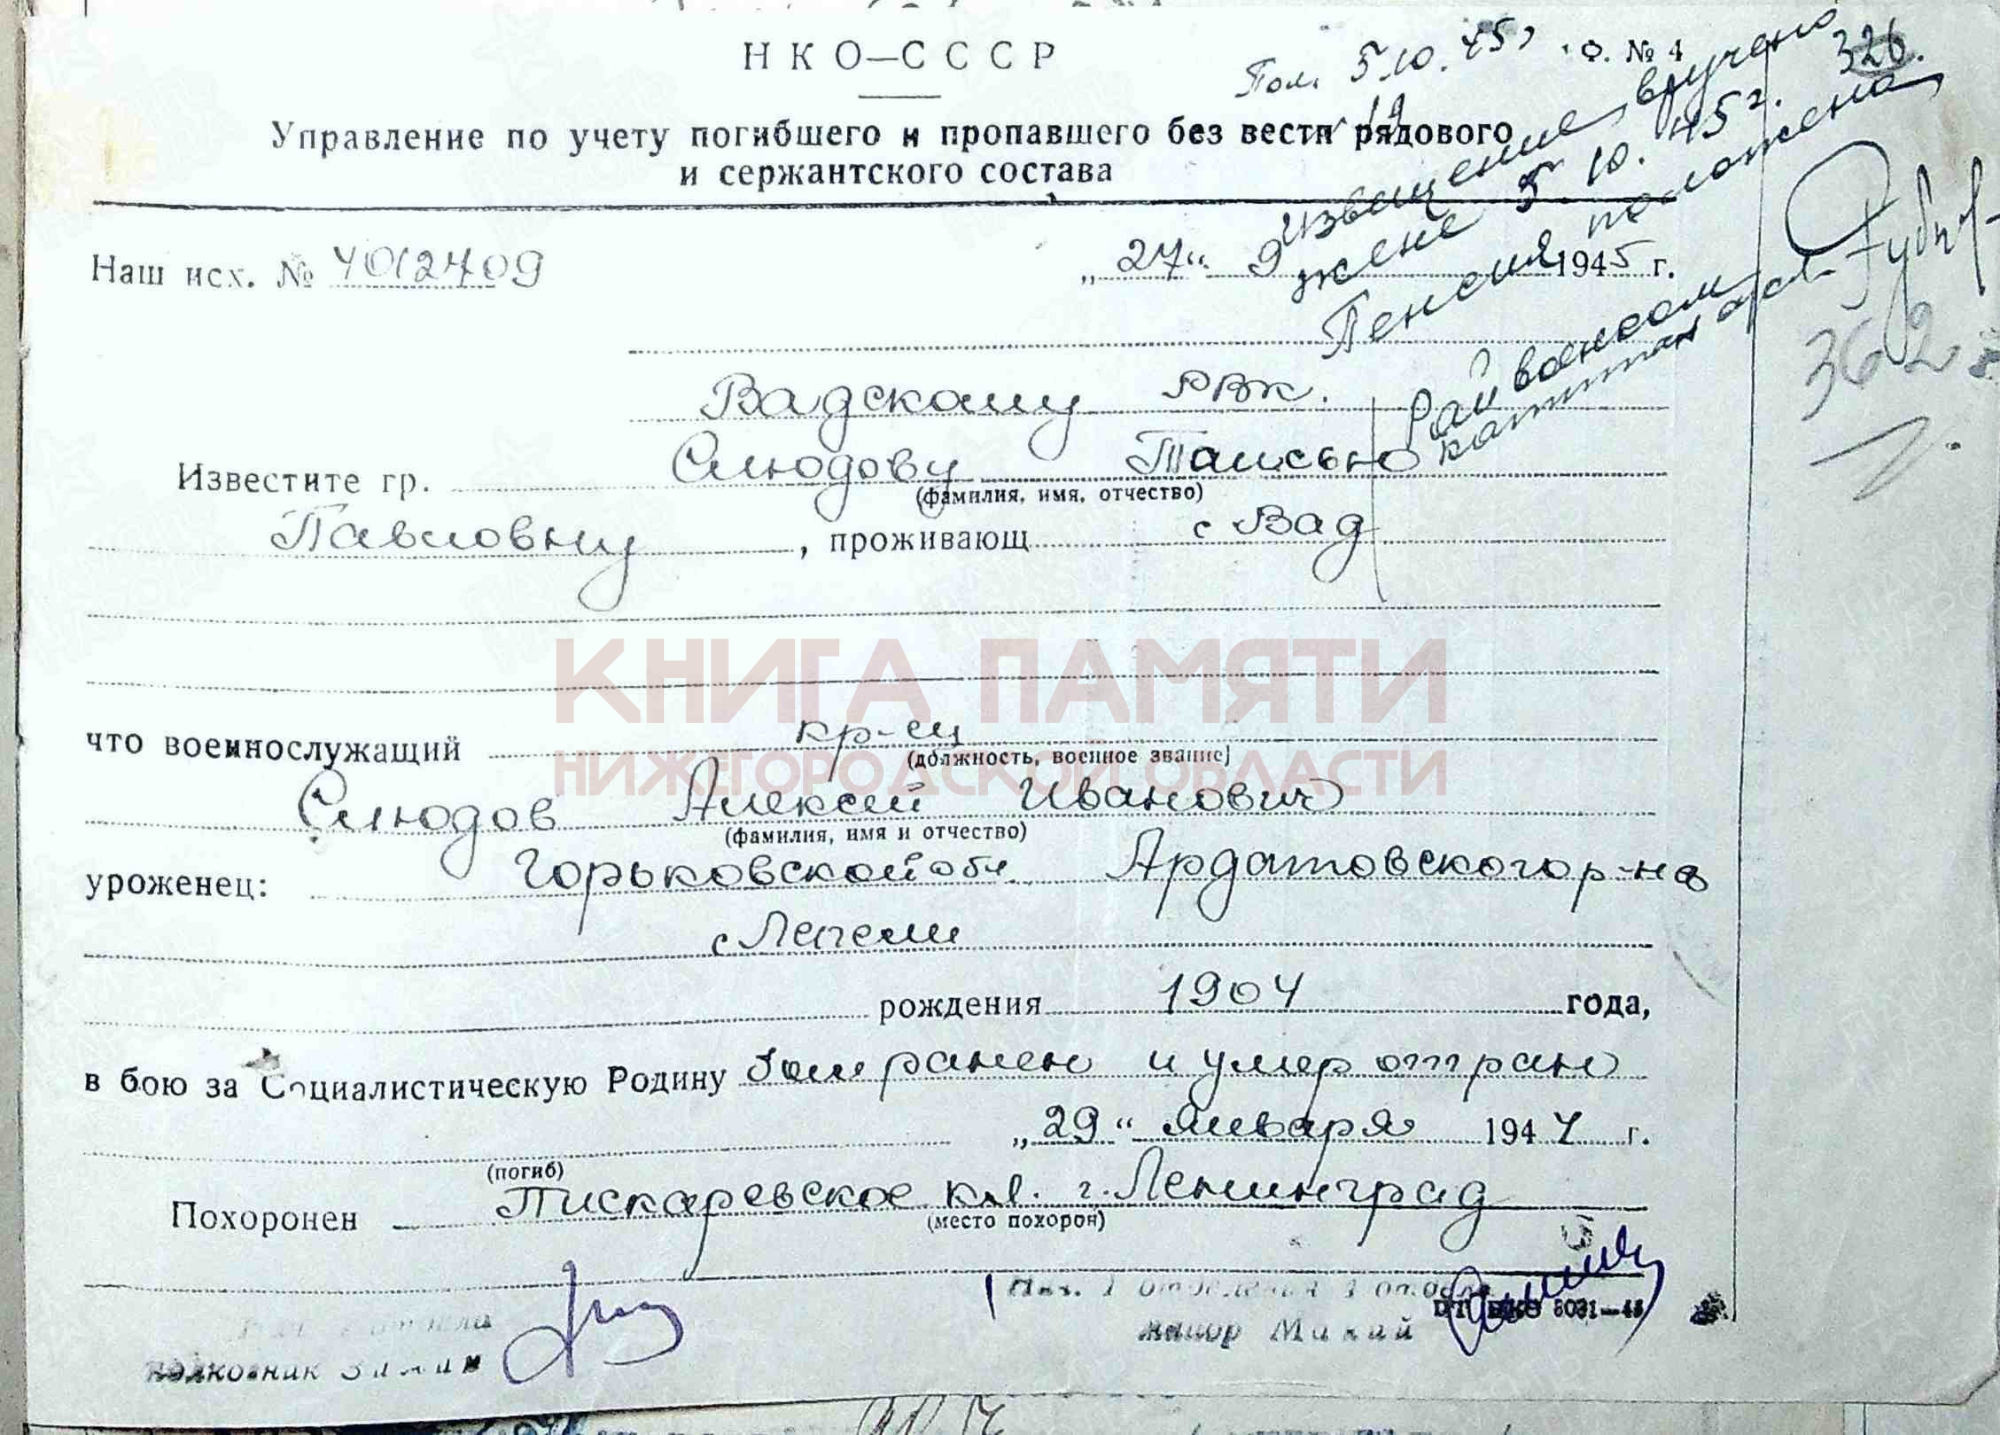 НКО—СССР
Пол. 5.10.45 г
Ф. № 4
326.
Управление по учету погибшего и пропавшего без вести рядового
и сержантского состава
Извещение вручено
жене 5.10.45 г.
Пенсия положена
Райвоенком
капитан
362
Наш исх. № 4012409
„27“ 9 1945 г.
Вадскому РВК.
Известите гр. Слюдову Таисью
(фамилия, имя, отчество)
Павловну, проживающ с Вад
КНИГА ПАМЯТИ
НИЖЕГОРОДСКОЙ ОБЛАСТИ
что военнослужащий кр-ец
(должность, военное звание)
Слюдов Алексей Иванович
(фамилия, имя и отчество)
уроженец: Горьковской обл. Ардатовского р-на
с
рождения 1904 года,
в бою за Социалистическую Родину был ранен и умер от ран
„29“ января 1944 г.
(погиб)
Похоронен Пискаревское кл. г. Ленинград
(место похорон)
Нач. 1 отделения 1 отдела
майор Макай
полковник